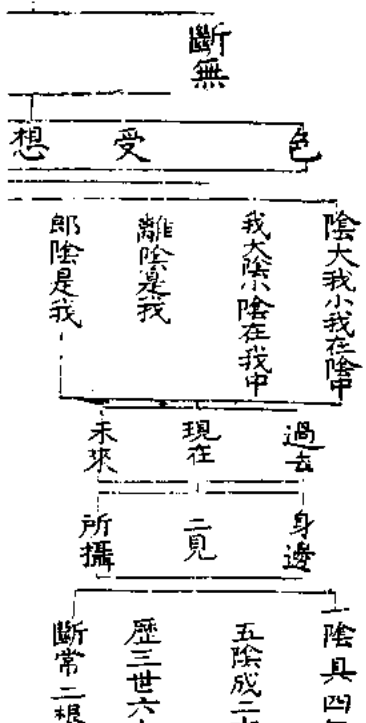 斷無
色
受
想
陰大我小我在陰中
我大陰小陰在我中
離陰是我
郎陰是我
過去
現在
未來
身邊
二見
所攝
一陰具四
五陰成二
歷三世六
斷常二根